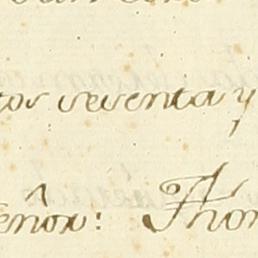 tos sesenta y
eñor: Thom